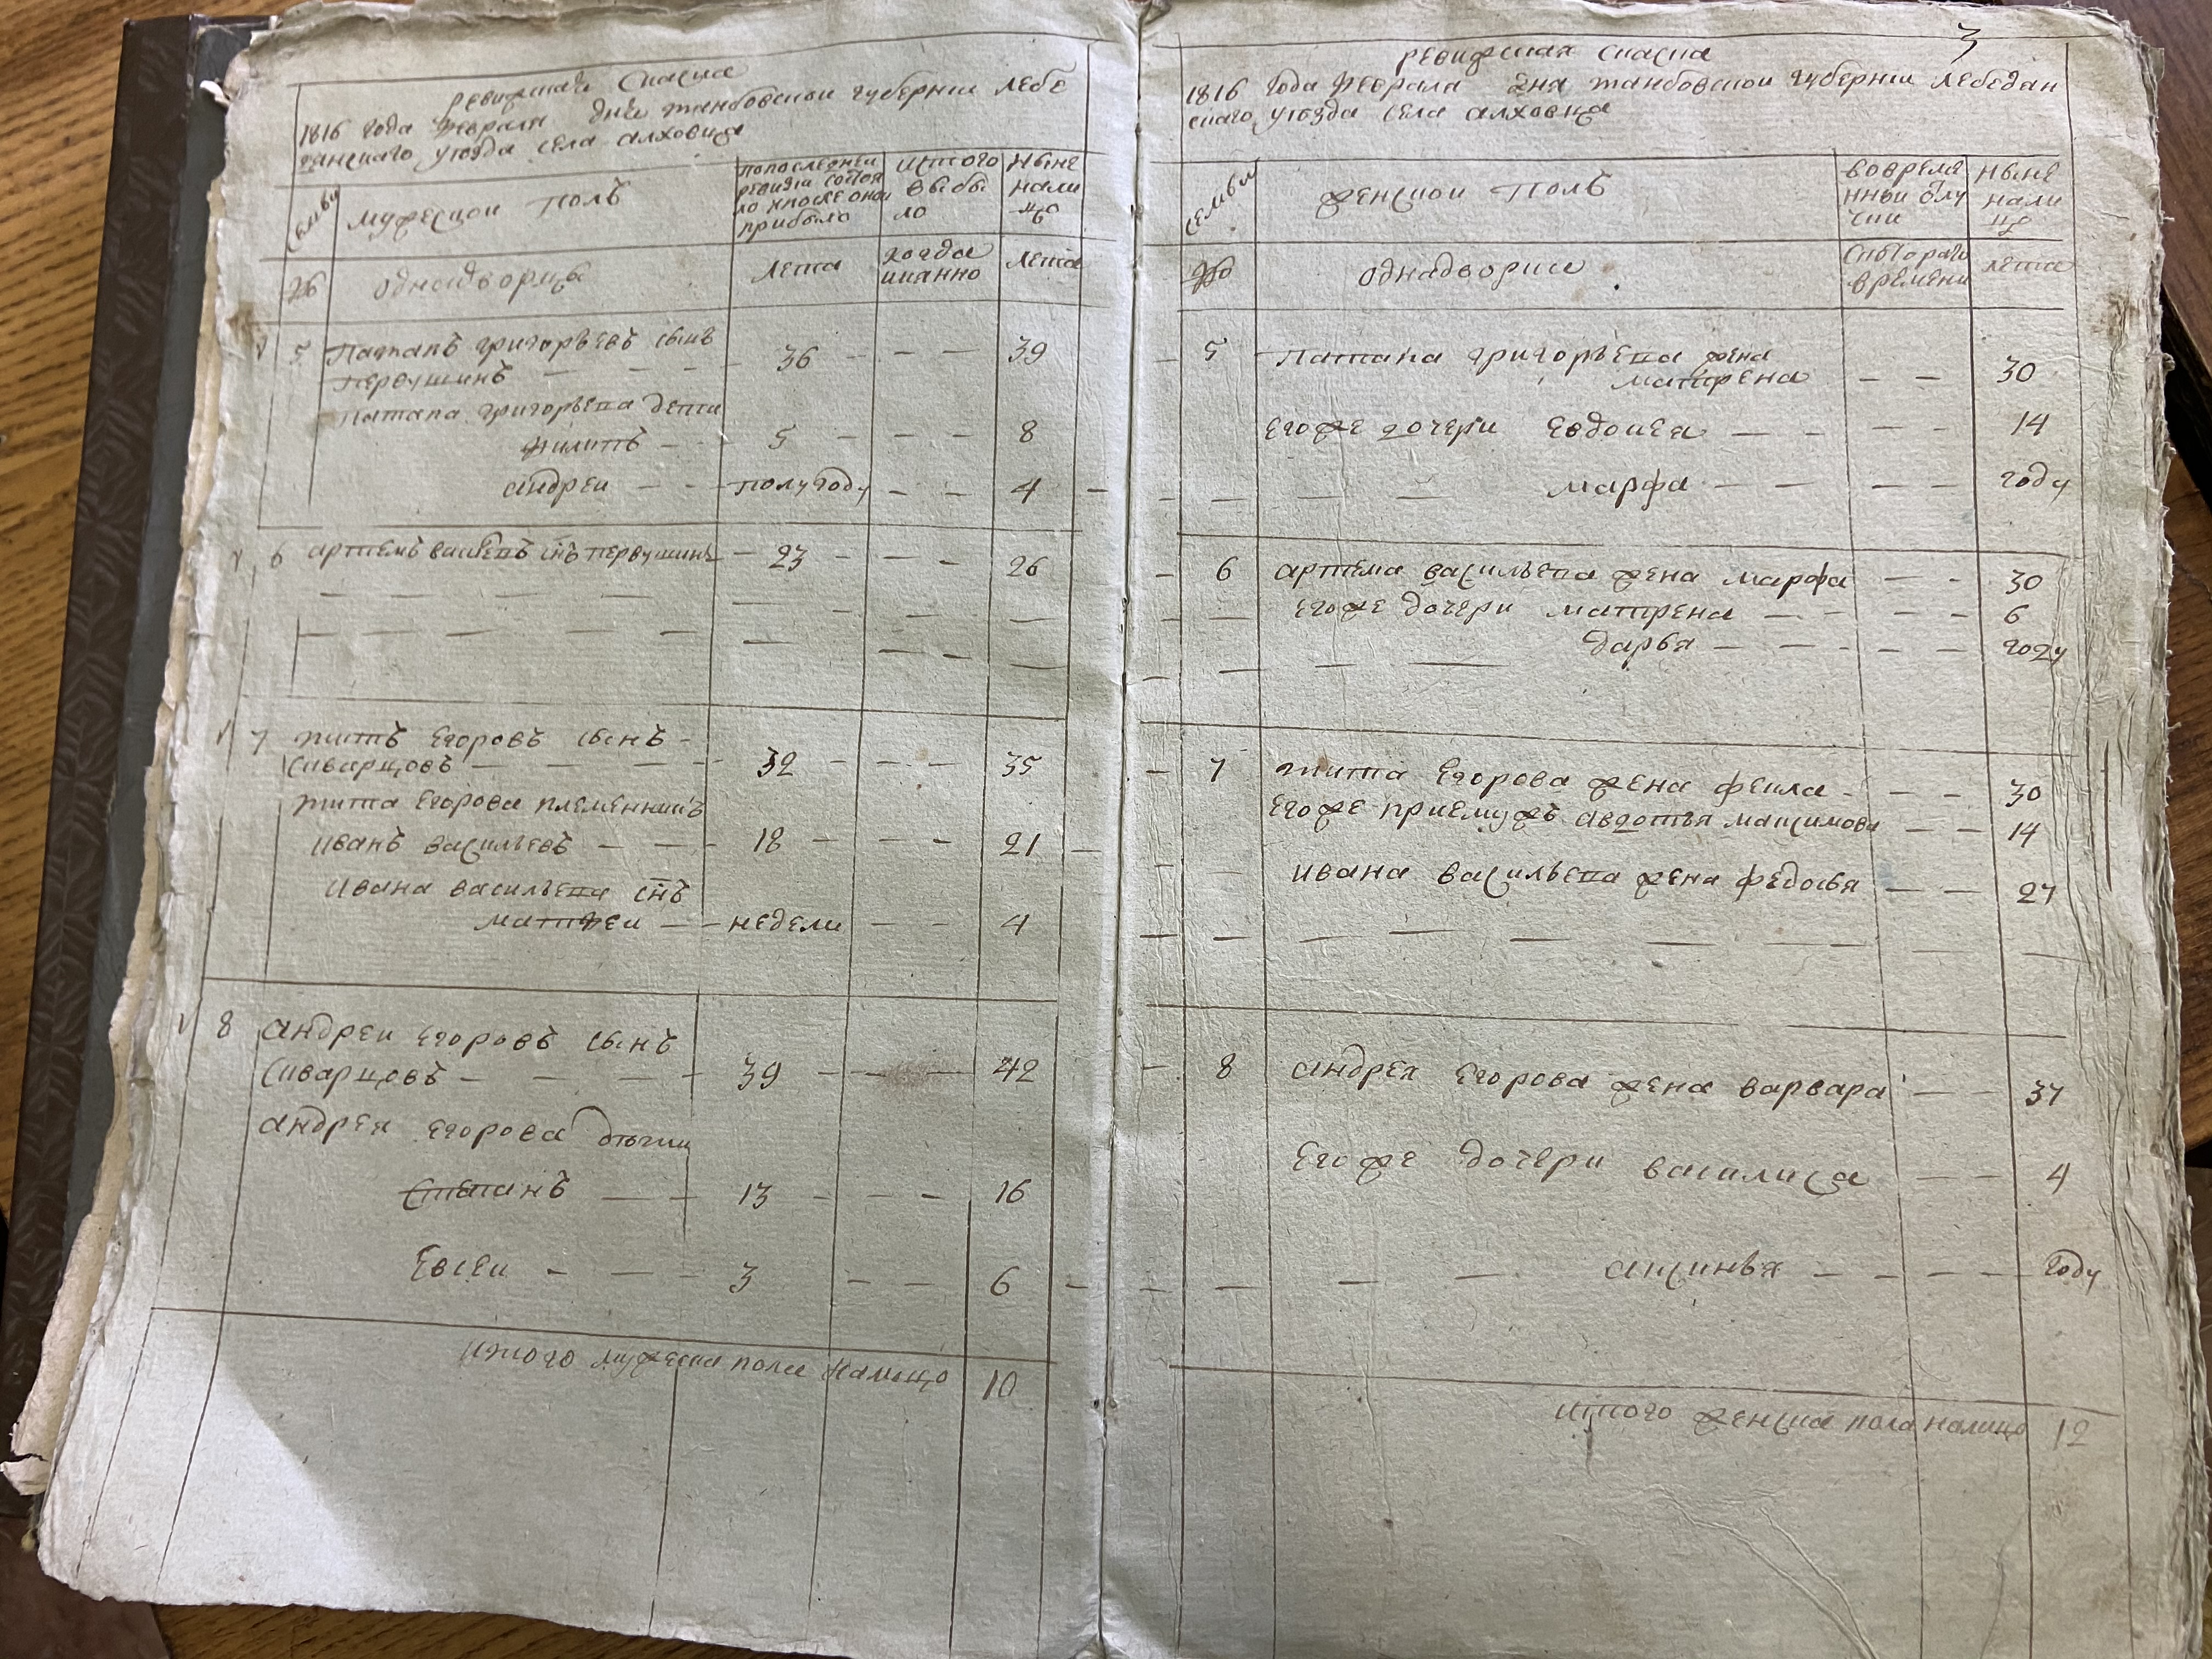 ревижская скаска
1816 года февраля дня танбовскои губернии лебе
дянскаго уезда села алховца
семьи
мужескои полъ
попоследнеи
ревизи состоя
ло ипосле оной
прибыло
изтого
выбы
ло
ныне
нали
цо
№
однадворцы
лета
когда
имянно
лета
5 Патапъ григорьевъ сынъ
Первушинъ — — — 36 — — — 39
Патапа григорьева дети
филипъ — — 5 — — — 8
андреи — — полугоду — — 4
6 артемъ васильевъ снъ первушинъ — 23 — — — 26
7 титъ Егоровъ сынъ —
Скварцовъ — — — — 32 — — — 35
тита Егорова племенникъ
иванъ васильевъ — — — 18 — — — 21
ивана васильева снъ
матфеи — — недели — — 4
8 андреи Егоровъ сынъ
Скварцовъ — — — — 39 — — — 42
андрея Егорова дѣти
Степанъ — — 13 — — — 16
Евсеи — — — 3 — — 6
итого мужеска пола налицо 10
3
ревижская скаска
1816 года февраля дня танбовскои губернии лебедян
скаго уезда села алховца
семьи
женскои полъ
вовремя
нной отлу
чки
ныне
нали
цо
№
однадворки
скотораго
времени
лета
5 Патапа григорьева жена
матрена — — 30
Егоже дочери Евдокея — — — — 14
марфа — — — — году
6 артема васильева жена марфа — — 30
Егоже дочери матрена — — — — 6
дарья — — — — — году
7 тита Егорова жена фекла — — — 30
Егоже приемужъ авдотья максимова — — 14
ивана васильева жена федосья — — 27
8 андрея Егорова жена варвара — — 37
Егоже дочери василиса — — 4
аксинья — — — — году
итого женска пола налицо 12